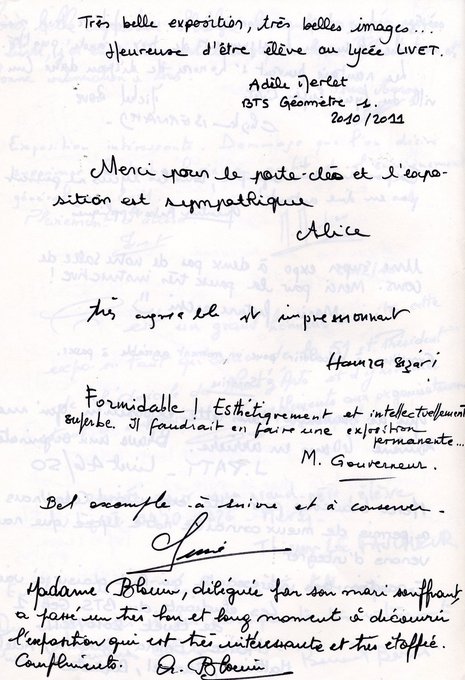 Très belle exposition, très belles images...
Heureuse d'être élève au lycée LIVET.
Adèle Merlet
BTS Géomètre 1.
2010/2011
Merci pour le porte-clés et l'expo-
sition est sympathique
Alice
très agréable et impressionnant
Hamza
Formidable ! Esthétiquement et intellectuellement
superbe. Il faudrait en faire une exposition
permanente...
M. Gouverneur.
Bel exemple à suivre et à conserver.
Madame Blouin, déléguée par son mari souffrant,
a passé un très bon et long moment à découvrir
l'exposition qui est très intéressante et très étoffée.
Compliments. A. Blouin